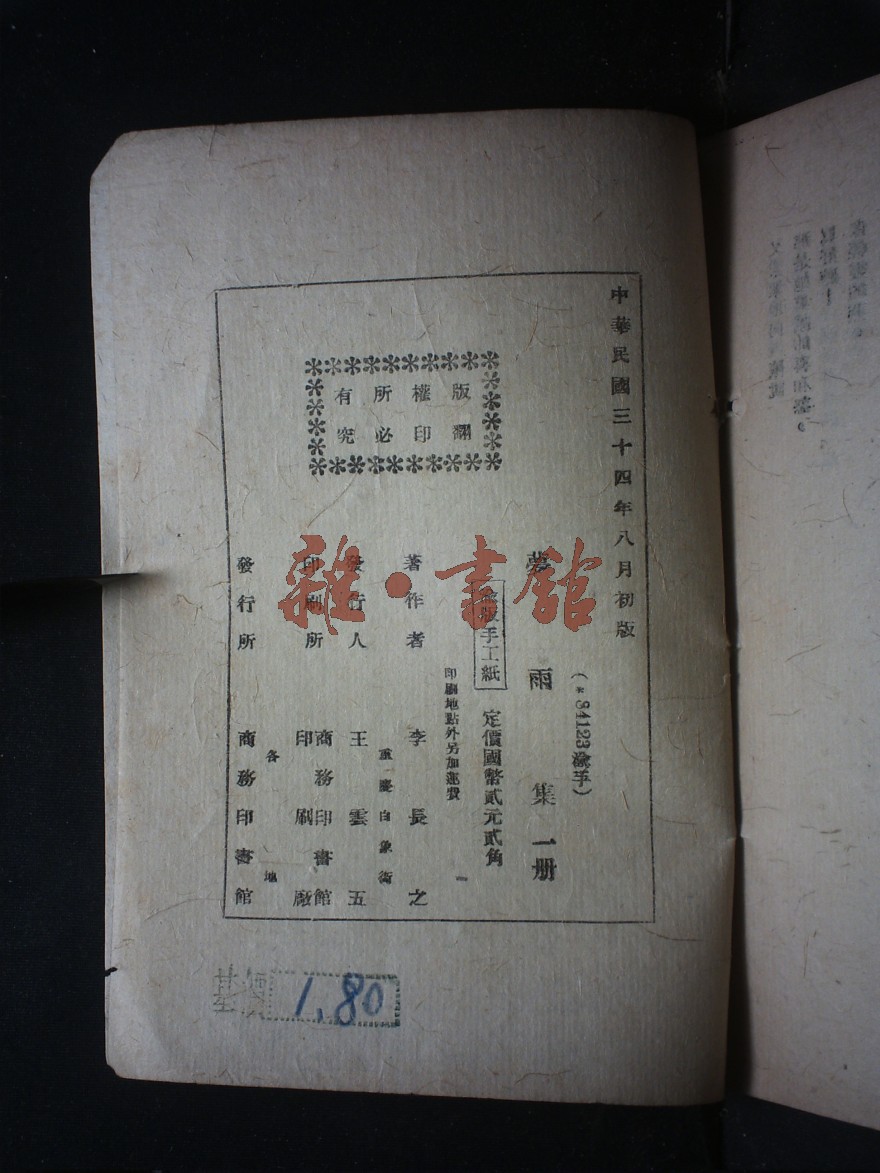 中華民國三十四年八月初版
(*84123渝手)
夢雨集一册
渝版手工紙
定價國幣貳元貳角
印刷地點外另加運費
版權所有
翻印必究
著作者 李長之
重慶白象街
發行人 王雲五
印刷所 商務印書館
印刷廠
各地
發行所 商務印書館
基價 1.80
雜·書館
以
！